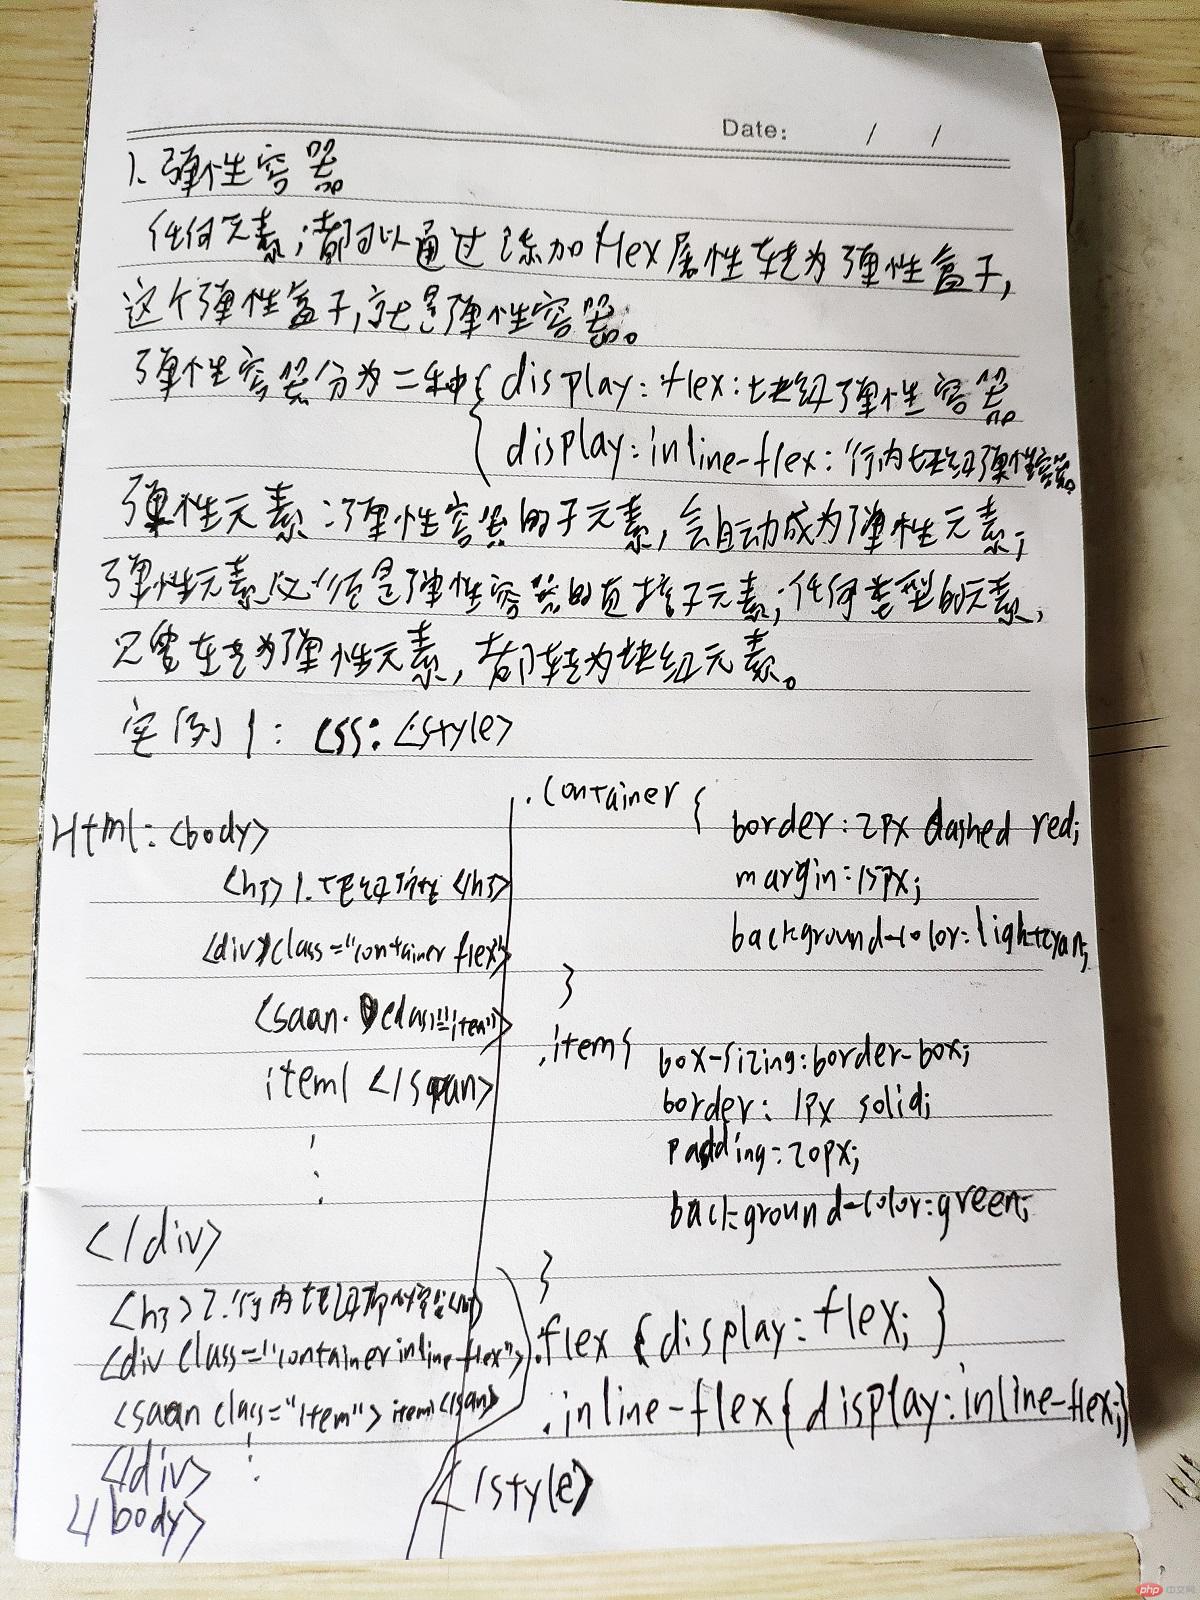 Date: / /
1. 弹性容器
任何元素;都可以通过添加flex属性转为弹性盒子,
这个弹性盒子,就是弹性容器。
弹性容器分为二种{ display: flex:块级弹性容器
{ display: inline-flex:行内块级弹性容器。
弹性元素:弹性容器的子元素,会自动成为弹性元素;
弹性元素必须是弹性容器的直接子元素;任何类型的元素,
只要转为弹性元素,都转为块级元素。
实例1: css: <style>
.container {
border: 2px dashed red;
margin: 15px;
background-color: lightcyan;
}
.item{
box-sizing: border-box;
border: 1px solid;
padding: 20px;
background-color: green;
}
.flex {display: flex; }
.inline-flex{ display: inline-flex;}
</style>
Html: <body>
<h3> 1. </h3>
<div class="container flex">
<saan class="item">
item1 </span>
⋮
</div>
<h3> 2. 行内块级
<div class="container inline-flex">
<saan class="item"> item1 </span>
</div> ⋮
</body>
php 中文网